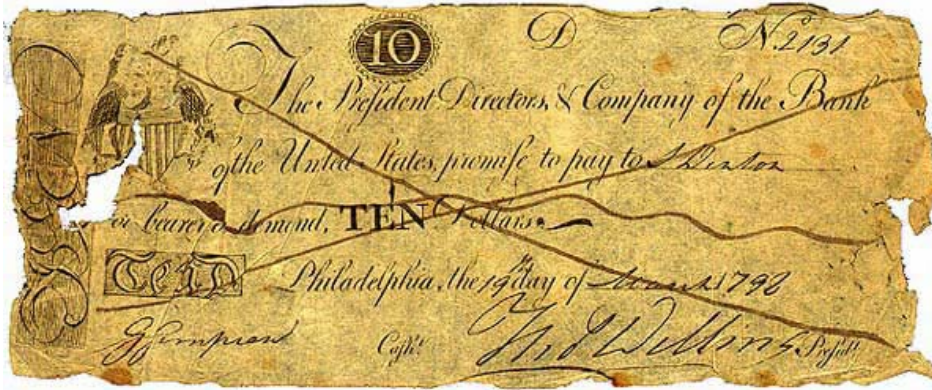 10 D No. 2131
The Preſident Directors, & Company of the Bank
of the United States, promiſe to pay to
or bearer on demand, TEN Dollars.
TEN Philadelphia, the 19th day of March 1792
G Simpson Caſhr. Tho Willing Preſidt.